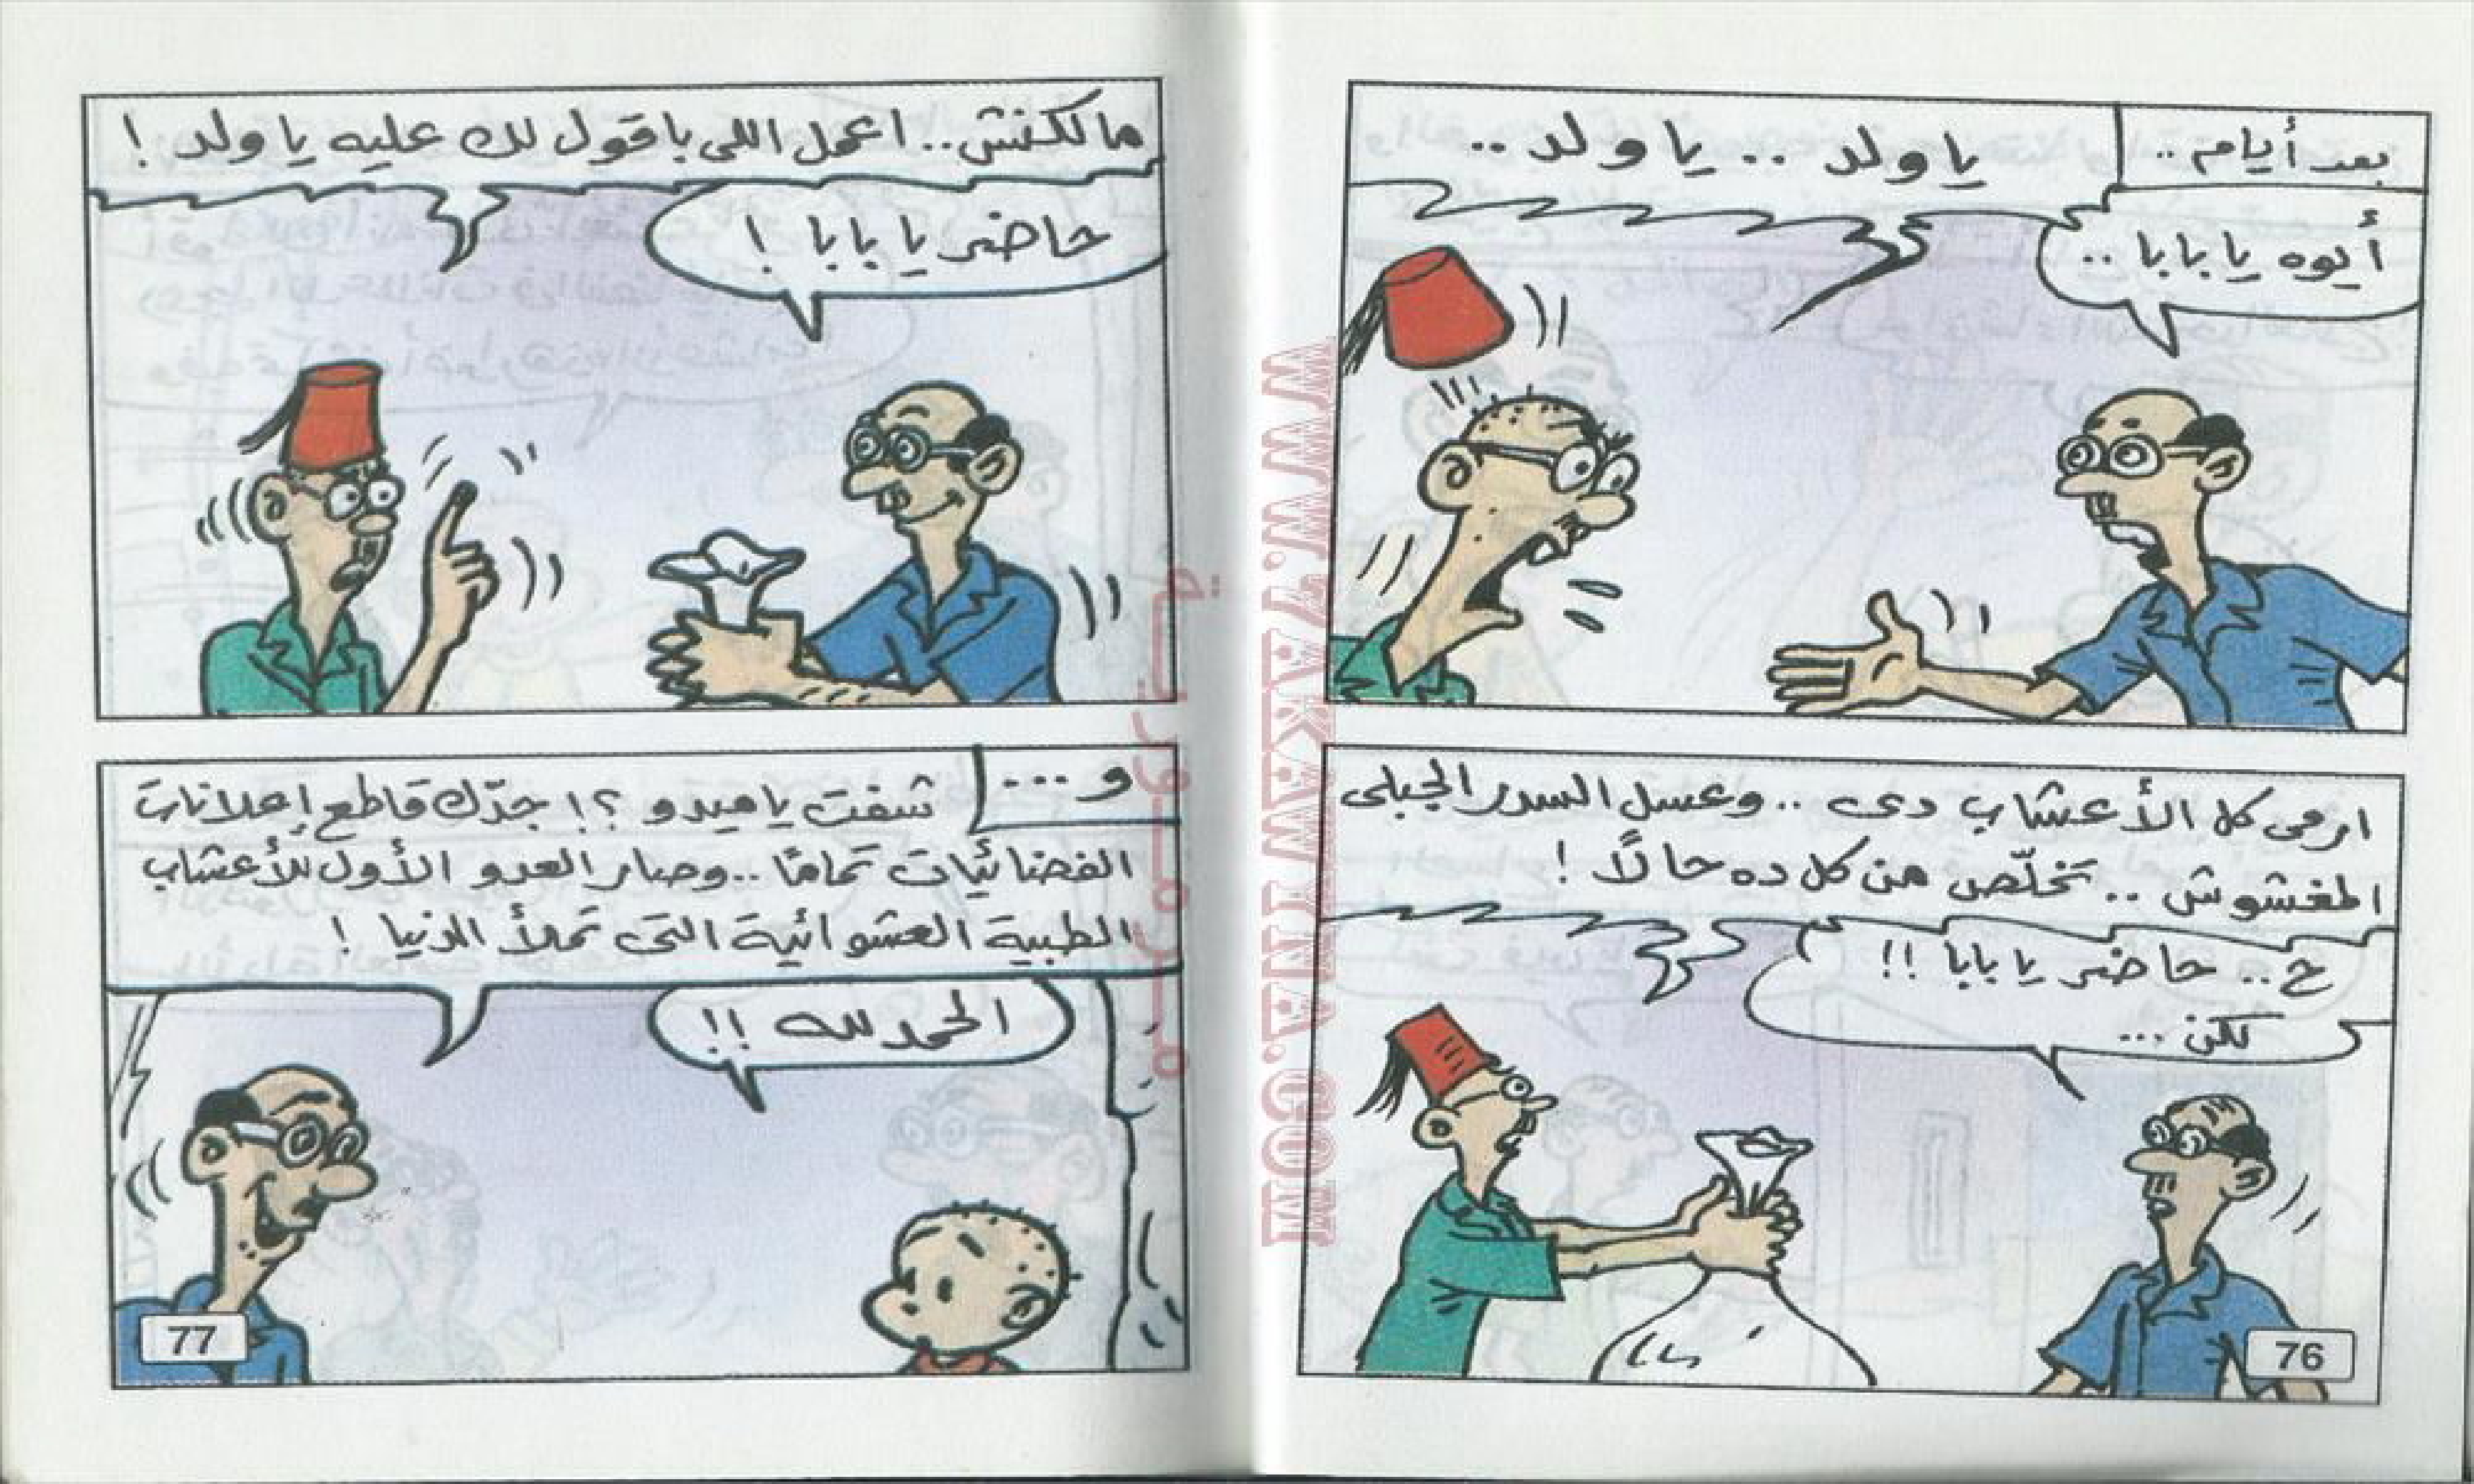 بعد أيام ..
يا ولد .. يا ولد ..
أيوه يا بابا ..
ارمى كل الأعشاب دى .. وعسل السدر الجبلى
المغشوش .. تخلّص من كل ده حالاً !
ح .. حاضر يا بابا !!
لكن ...
76
مالكنش .. اعمل اللى باقول لك عليه يا ولد !
حاضر يا بابا !
و ...
شفت يا ميدو ؟! جدّك قاطع إعلانات
الفضائيات تمامًا .. وصار العدو الأول للأعشاب
الطبية العشوائية التى تملأ الدنيا !
الحمد لله !!
77
WWW.ARAKAWIANA.COM